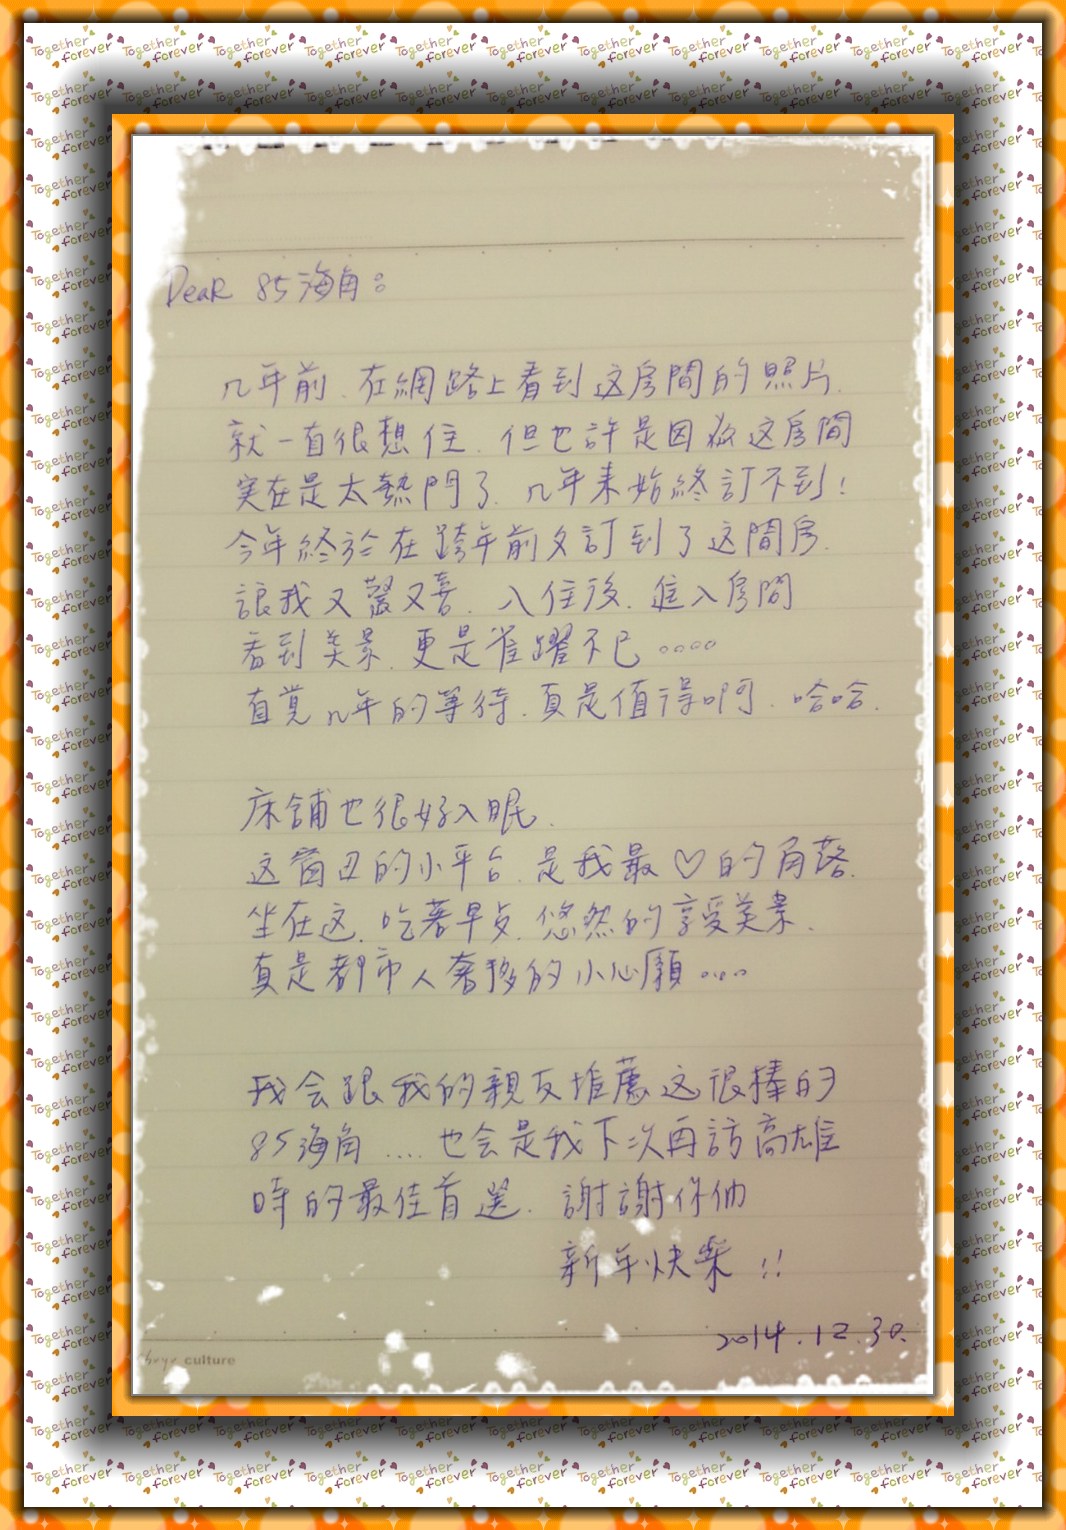 Together forever
Dear 85海角:
几年前.在網路上看到这房間的照片.
就一直很想住.但也許是因為这房間
実在是太熱門了.几年來始終訂不到!
今年終於在跨年前夕訂到了这間房.
讓我又驚又喜.入住後.進入房間
看到美景.更是雀躍不已。。。。
直覚几年的等待.真是值得啊.哈哈.
床舖也很好入眠.
这窗边的小平台.是我最♡的角落.
坐在这.吃著早点.悠然的享受美景.
真是都市人奢侈的小心願....
我会跟我的親友推薦这很棒的
85海角....也会是我下次再訪高雄
時的最佳首選.謝謝你們
新年快楽!!
2014.12.30.
culture